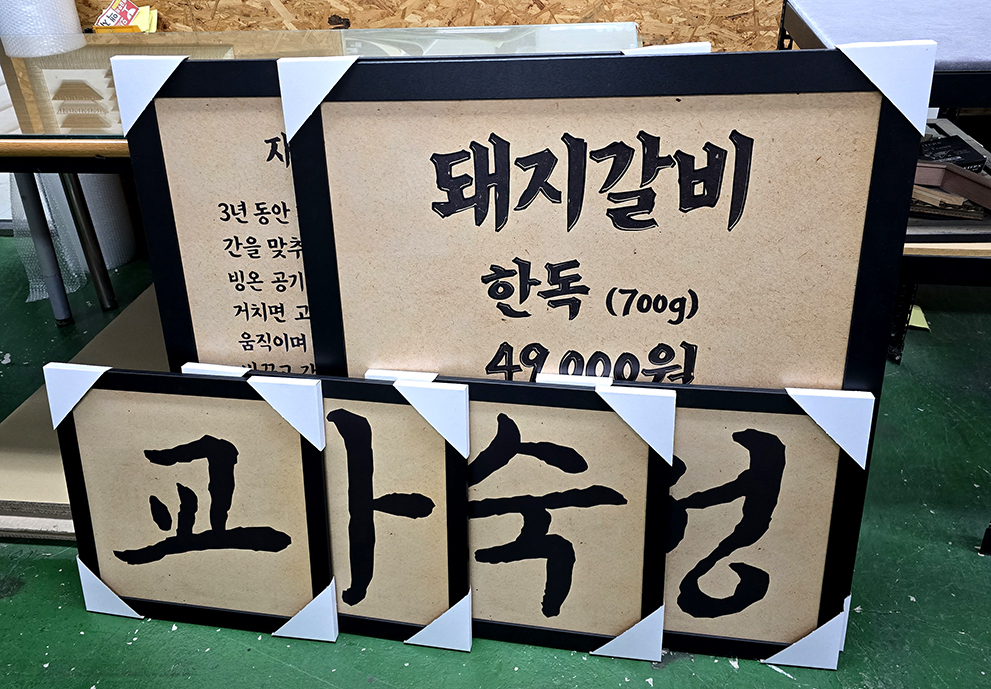 돼지갈비
한독 (700g)
49,000원
3년 동안
간을 맞추
빙온 공기
거치면 고
움직이며
교
숙